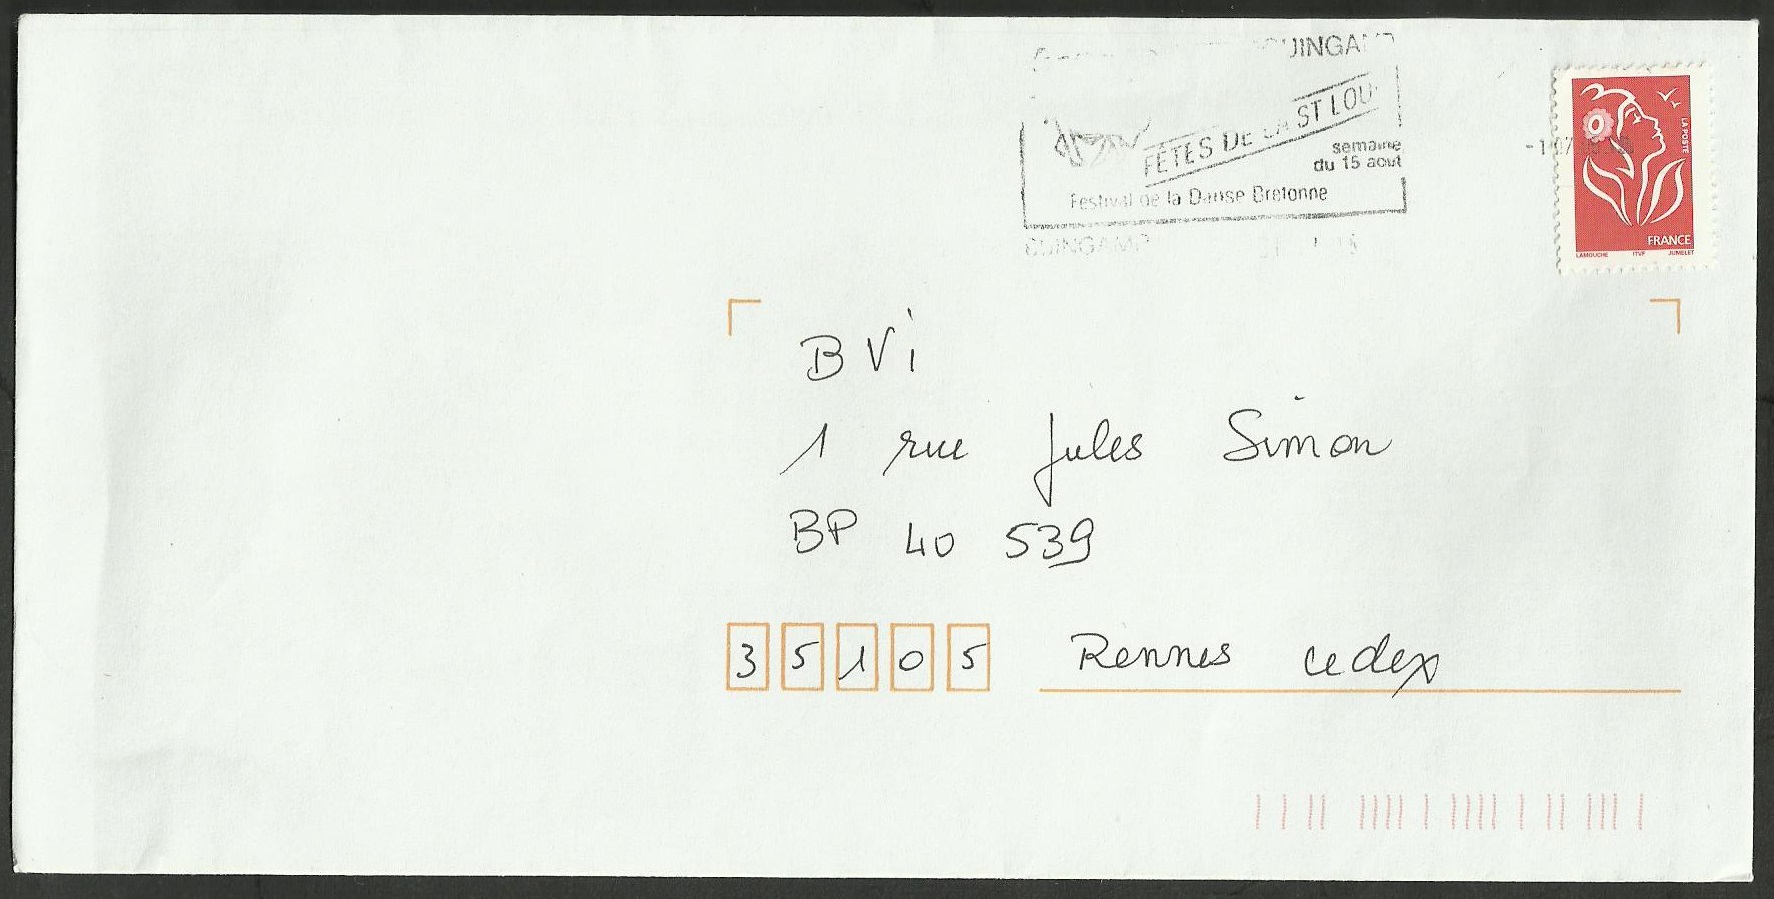 FÊTES DE LA ST LOU
semaine
du 15 août
Festival de la Danse Bretonne
GUINGAMP
LA POSTE
FRANCE
LAMOUCHE ITVF JUMELET
BVi
1 rue Jules Simon
BP 40 539
35105 Rennes cedex